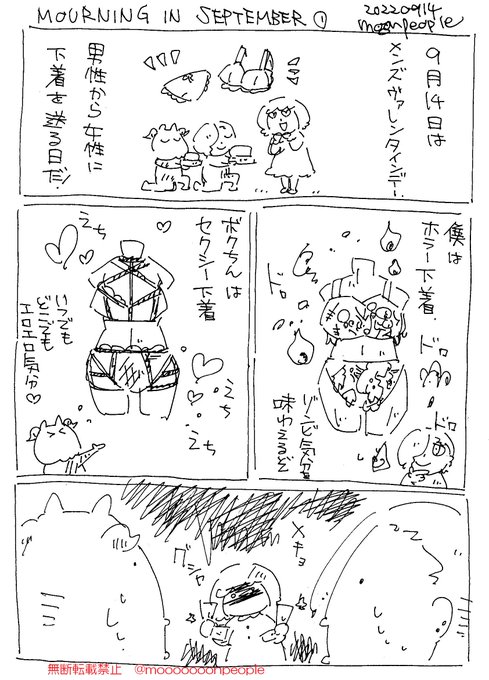 MOURNING IN SEPTEMBER ①
20220914
moonpeople
9月14日は
メンズヴァレンタインデー。
男性から女性に
下着を送る日だ!
僕は
ホラー下着。
ドロ
ドロ
ドロ
ゾンビ気分
味わえるぞ
ボクちんは
セクシー下着
えち
えち
いつでも
どこでも
エロエロ気分♡
メキョ
グシャ
無断転載禁止 @mooooooohpeople